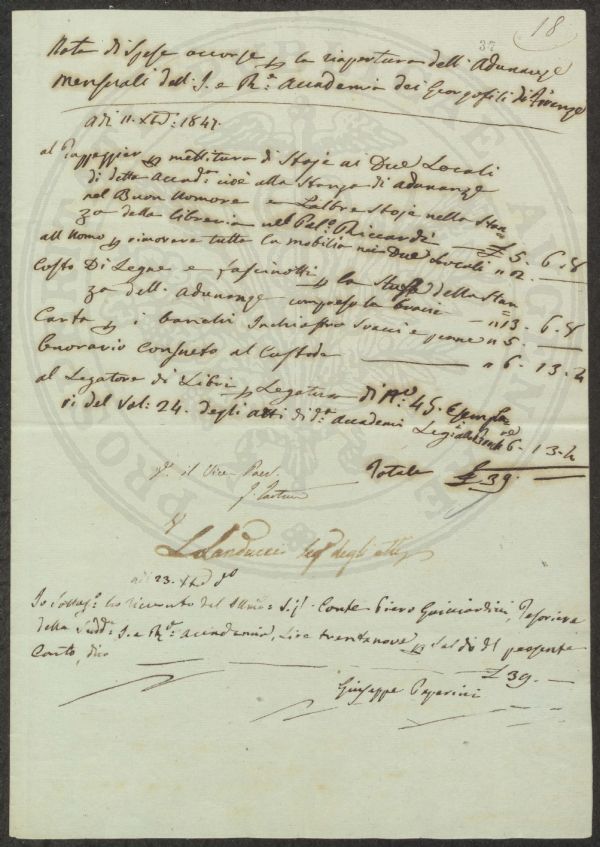 37
18
Nota di Spese occorse p la riapertura dell' Adunanze
mensuali dell' I. e R.ª Accademia dei Georgofili di Firenze
Adi 11. Xbre: 1847.
al p mettitura di Stoje ai Due Locali
di detta Accad.ª cioè alla Stanza di adunanze
nel Buon Umore e l'altre Stoje nella Stan=
za della libreria nel Pal.º Riccardi — £ 5. 6. 8
all Uomo p rimovere tutta la mobilia nei Due locali " 2. —
Costo Di Legne e fascinotti p la Stufa della Stan=
za dell' adunanze compreso la brace — " 13. 6. 8
Carta p i banchi Inchiostro e penne " 5. —
Onorario consueto al Custode — " 6. 13. 4
al Legatore di Libri p Legatura di N.º 45. Esempla=
ri del Vol: 24. degli atti di d.ª Accademi 6. 13. 4
Totale £ 39. —
V. il Vice Pres.
V.
L Landucci Seg.º degli atti
adi 23. Xbre dº
Io ho ricevuto dal Sig. Conte Piero Guicciardini, Tesoriere
della Sudd.ª I. e R.ª Accademia, Lire trentanove p Saldo del presente
Conto, dico — £ 39. —
Giuseppe Paperini